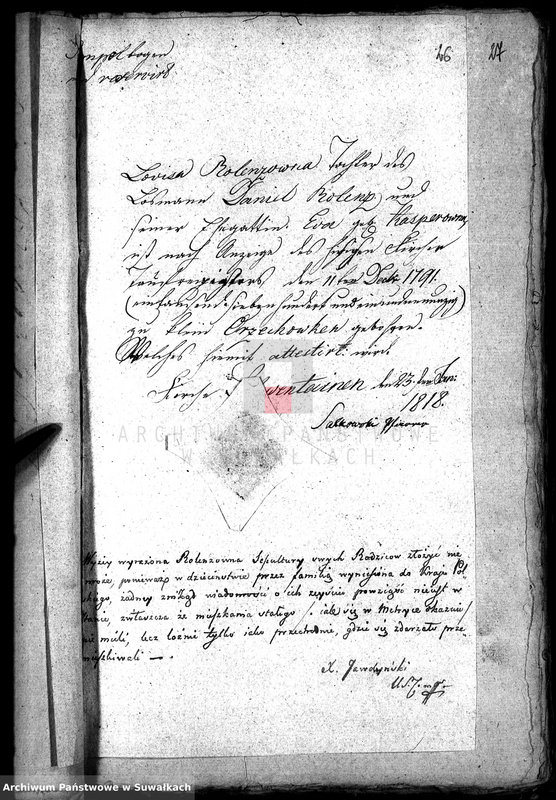 Stempelbogen
reservirt.
26 27
Lovisa Rolenzowna Tochter des
Losmann Daniel Rolenz und
seiner Ehegattin Eva geb. Kasperowna
ist nach Anzeige des hiesigen Kirchen
den 11ten Decbr 1791.
(eintausend siebenhundert und einundneunzig)
zu klein Orzechowken gebohren.
Welches hiemit attestirt wird.
Kirche Schwentainen den 23. Jan:
1818.
Salkowski Pfarrer
ARCHIWUM PAŃSTWOWE
W SUWAŁKACH
Wyżey wyrażona Rolenzowna Sepultury swych Rodziców złożyć nie
może, ponieważ w dzieciństwie przez familią wyniesiona do Kraju Pol
skiego, żadney znikąd wiadomości o ich zeyściu powziąść nieiest w
stanie, zwłaszcza że mieszkania stałego, iak się w Metryce okazuie
nie mieli, lecz tylko iako przechodnie, gdzie się zdarzało prze
mieszkiwali —.
X. Jawdyński
Archiwum Państwowe w Suwałkach